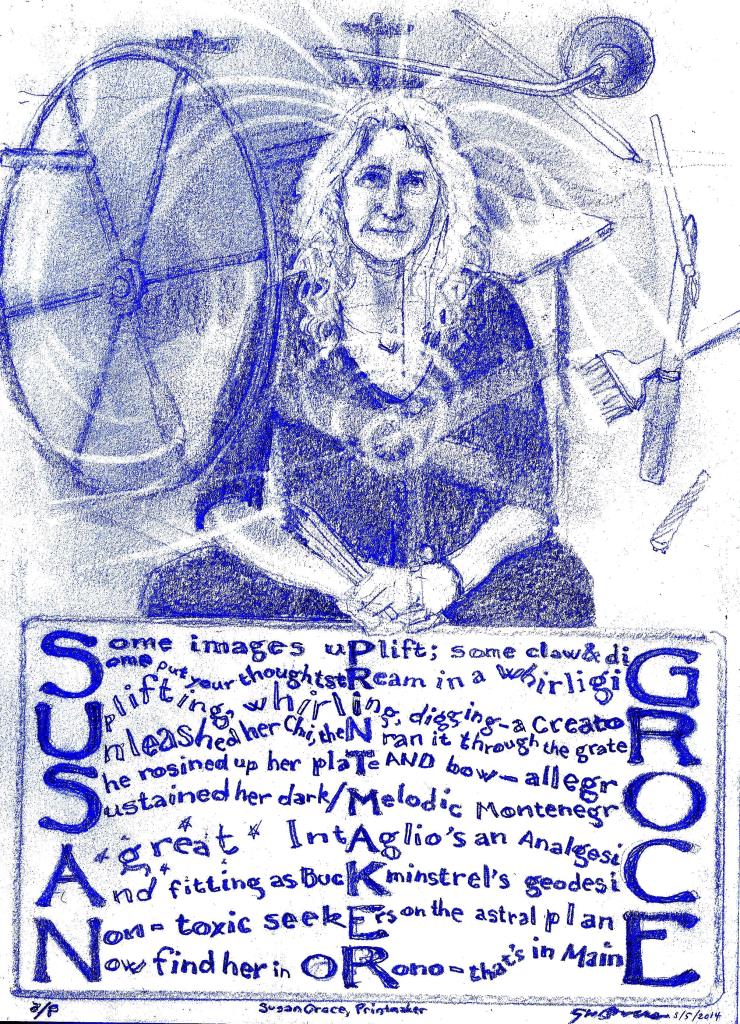 Some images uPlift; some claw & diG
Some put your thoughtstReam in a whirligiG
Uplifting, whirlIng, digging—a CreatoR
Unleashed her Chi, theN ran it through the grateR
She rosined up her plaTe AND bow—allegrO
Sustained her dark/Melodic MontenegrO
A *great* IntAglio's an AnalgesiC
And fitting as BucKminstrel's geodesiC
Non-toxic seekErs on the astral planE
Now find her in oRono—that's in MainE
a/p Susan Groce, Printmaker